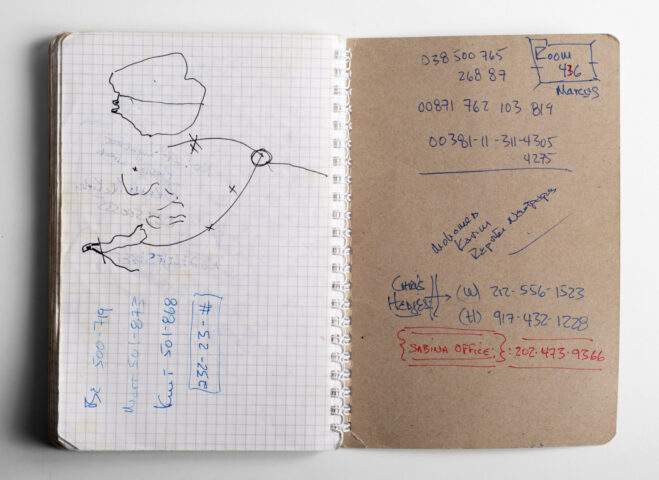 038 500 765
268 87
Room
436
Marcus
00871 762 103 819
00381-11-311-4305
4275
Mohamed
Karim
Chris
(W) 212-556-1523
(H) 917-432-1228
SABINA OFFICE: : 202-473-9366
500-719
501-873
Kurt 501-868
232-23-#